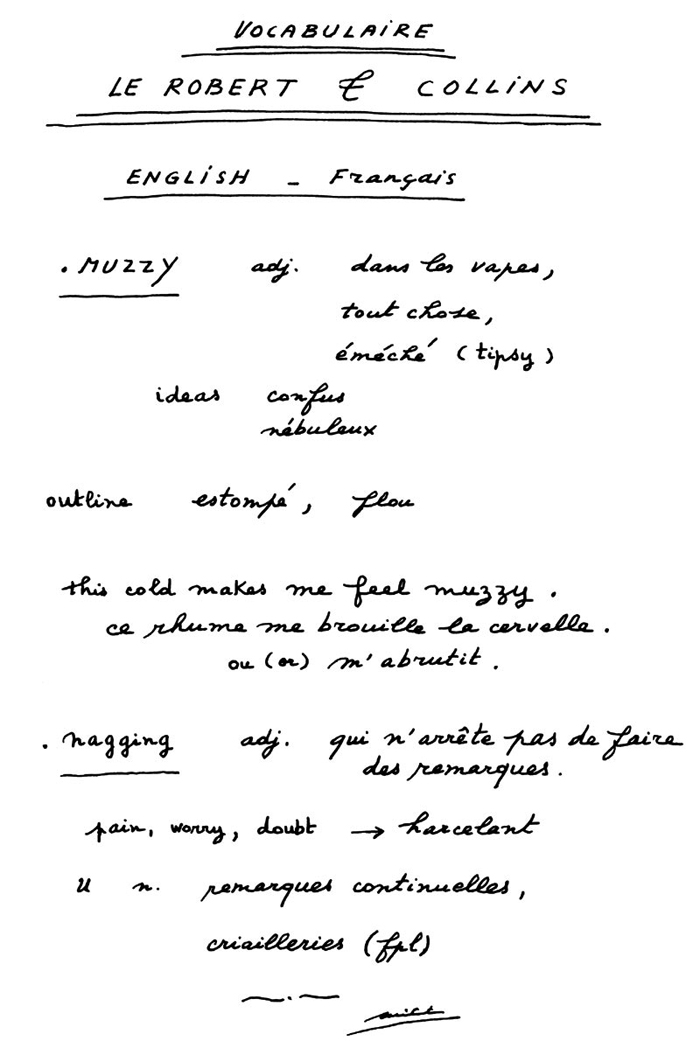 VOCABULAIRE
LE ROBERT & COLLINS
ENGLISH - Français
. MUZZY adj. dans les vapes,
tout chose,
éméché (tipsy)
ideas confus
nébuleux
outline estompé, flou
this cold makes me feel muzzy.
ce rhume me brouille la cervelle.
ou (or) m'abrutit.
. nagging adj. qui n'arrête pas de faire
des remarques.
pain, worry, doubt → harcelant
U n. remarques continuelles,
criailleries (fpl)